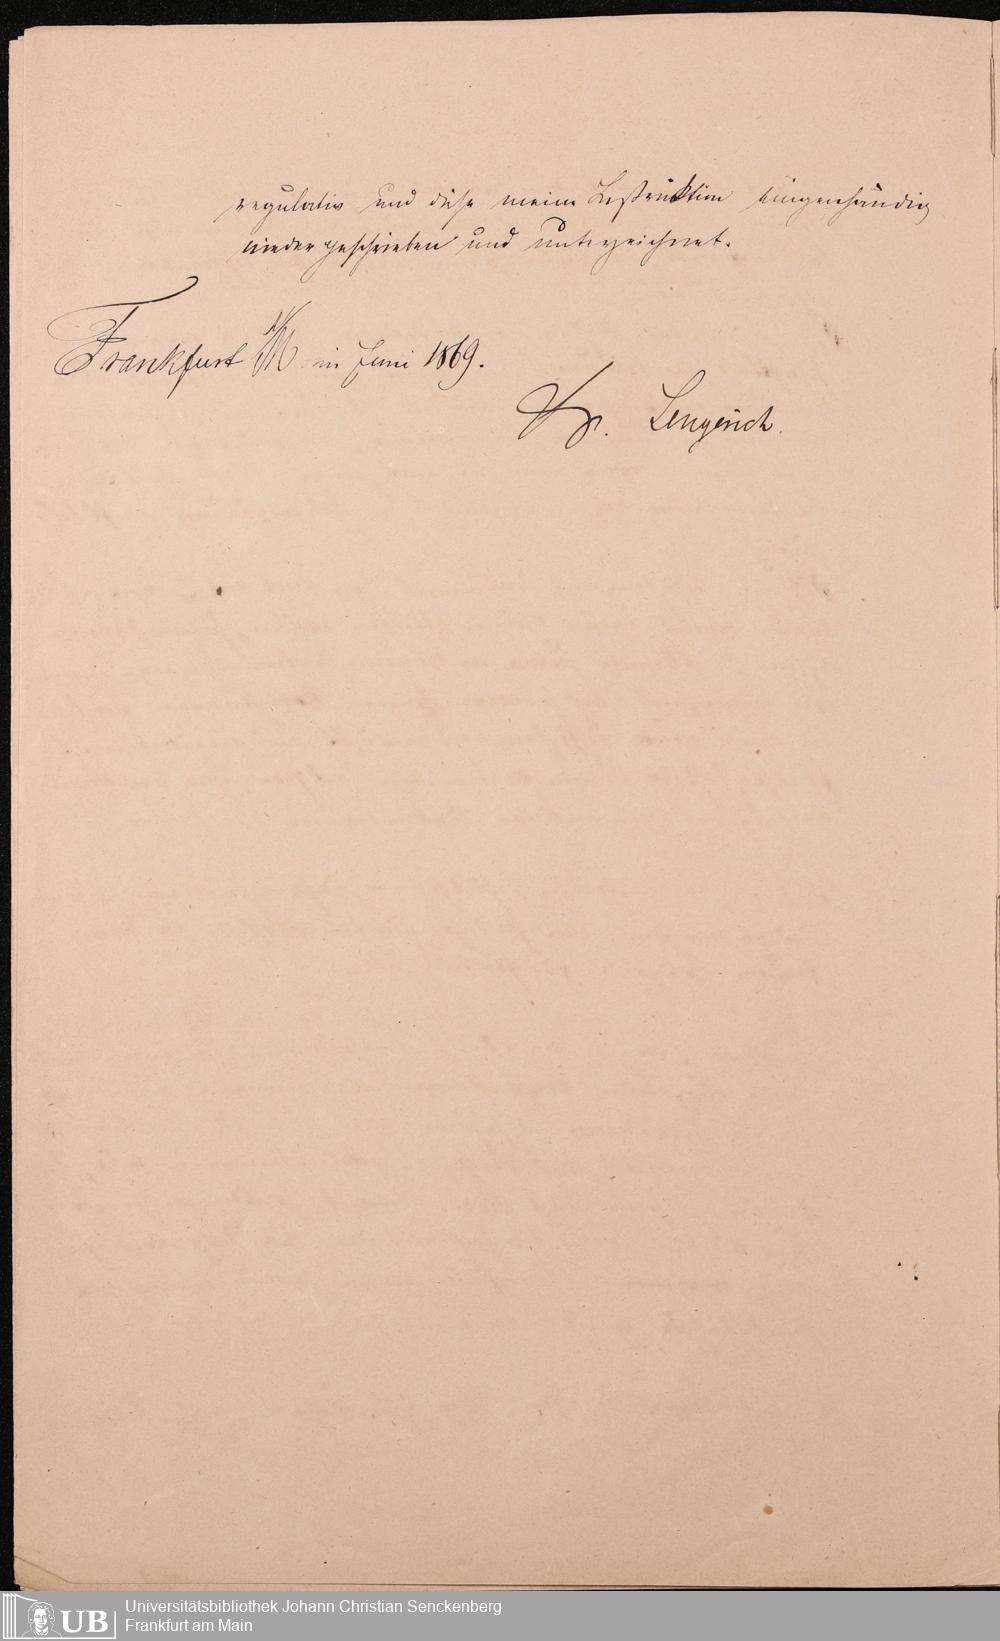 regulativ und diese meine Instruktion eigenhändig
niedergeschrieben und unterzeichnet.
Frankfurt a/M im Juni 1869.
Lengerich.
UB
Universitätsbibliothek Johann Christian Senckenberg
Frankfurt am Main